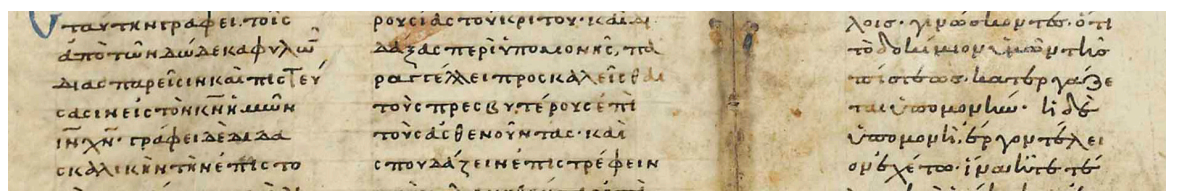 ταύτην γράφει· τοῖς
ἀπὸ τῶν δώδεκα φυλῶ
διασπαρεῖσιν καὶ πιστεύ
σασιν εἰς τὸν κ̅ν̅ ἡμῶν
ι̅ν̅ χ̅ν̅· γράφει δὲ διδα
σκαλικὴν τὴν ἐπιστο
ρουσίας τοῦ κριτοῦ· καὶ δι
δάξας περὶ ὑπομονῆς, πα
ραγγέλλει προσκαλεῖσθαι
τοὺς πρεσβυτέρους ἐπὶ
τοὺς ἀσθενοῦντας· καὶ
σπουδάζειν ἐπιστρέφειν
λοις· γινώσκοντες· ὅτι
τὸ δοκίμιον ὑμῶν τῆς
πίστεως· κατεργάζε
ται ὑπομονήν· ἡ δὲ
ὑπομονὴ, ἔργον τέλει
ον ἐχέτω· ἵνα ἦτε τέ